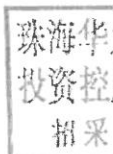 珠海华
投资控
招采